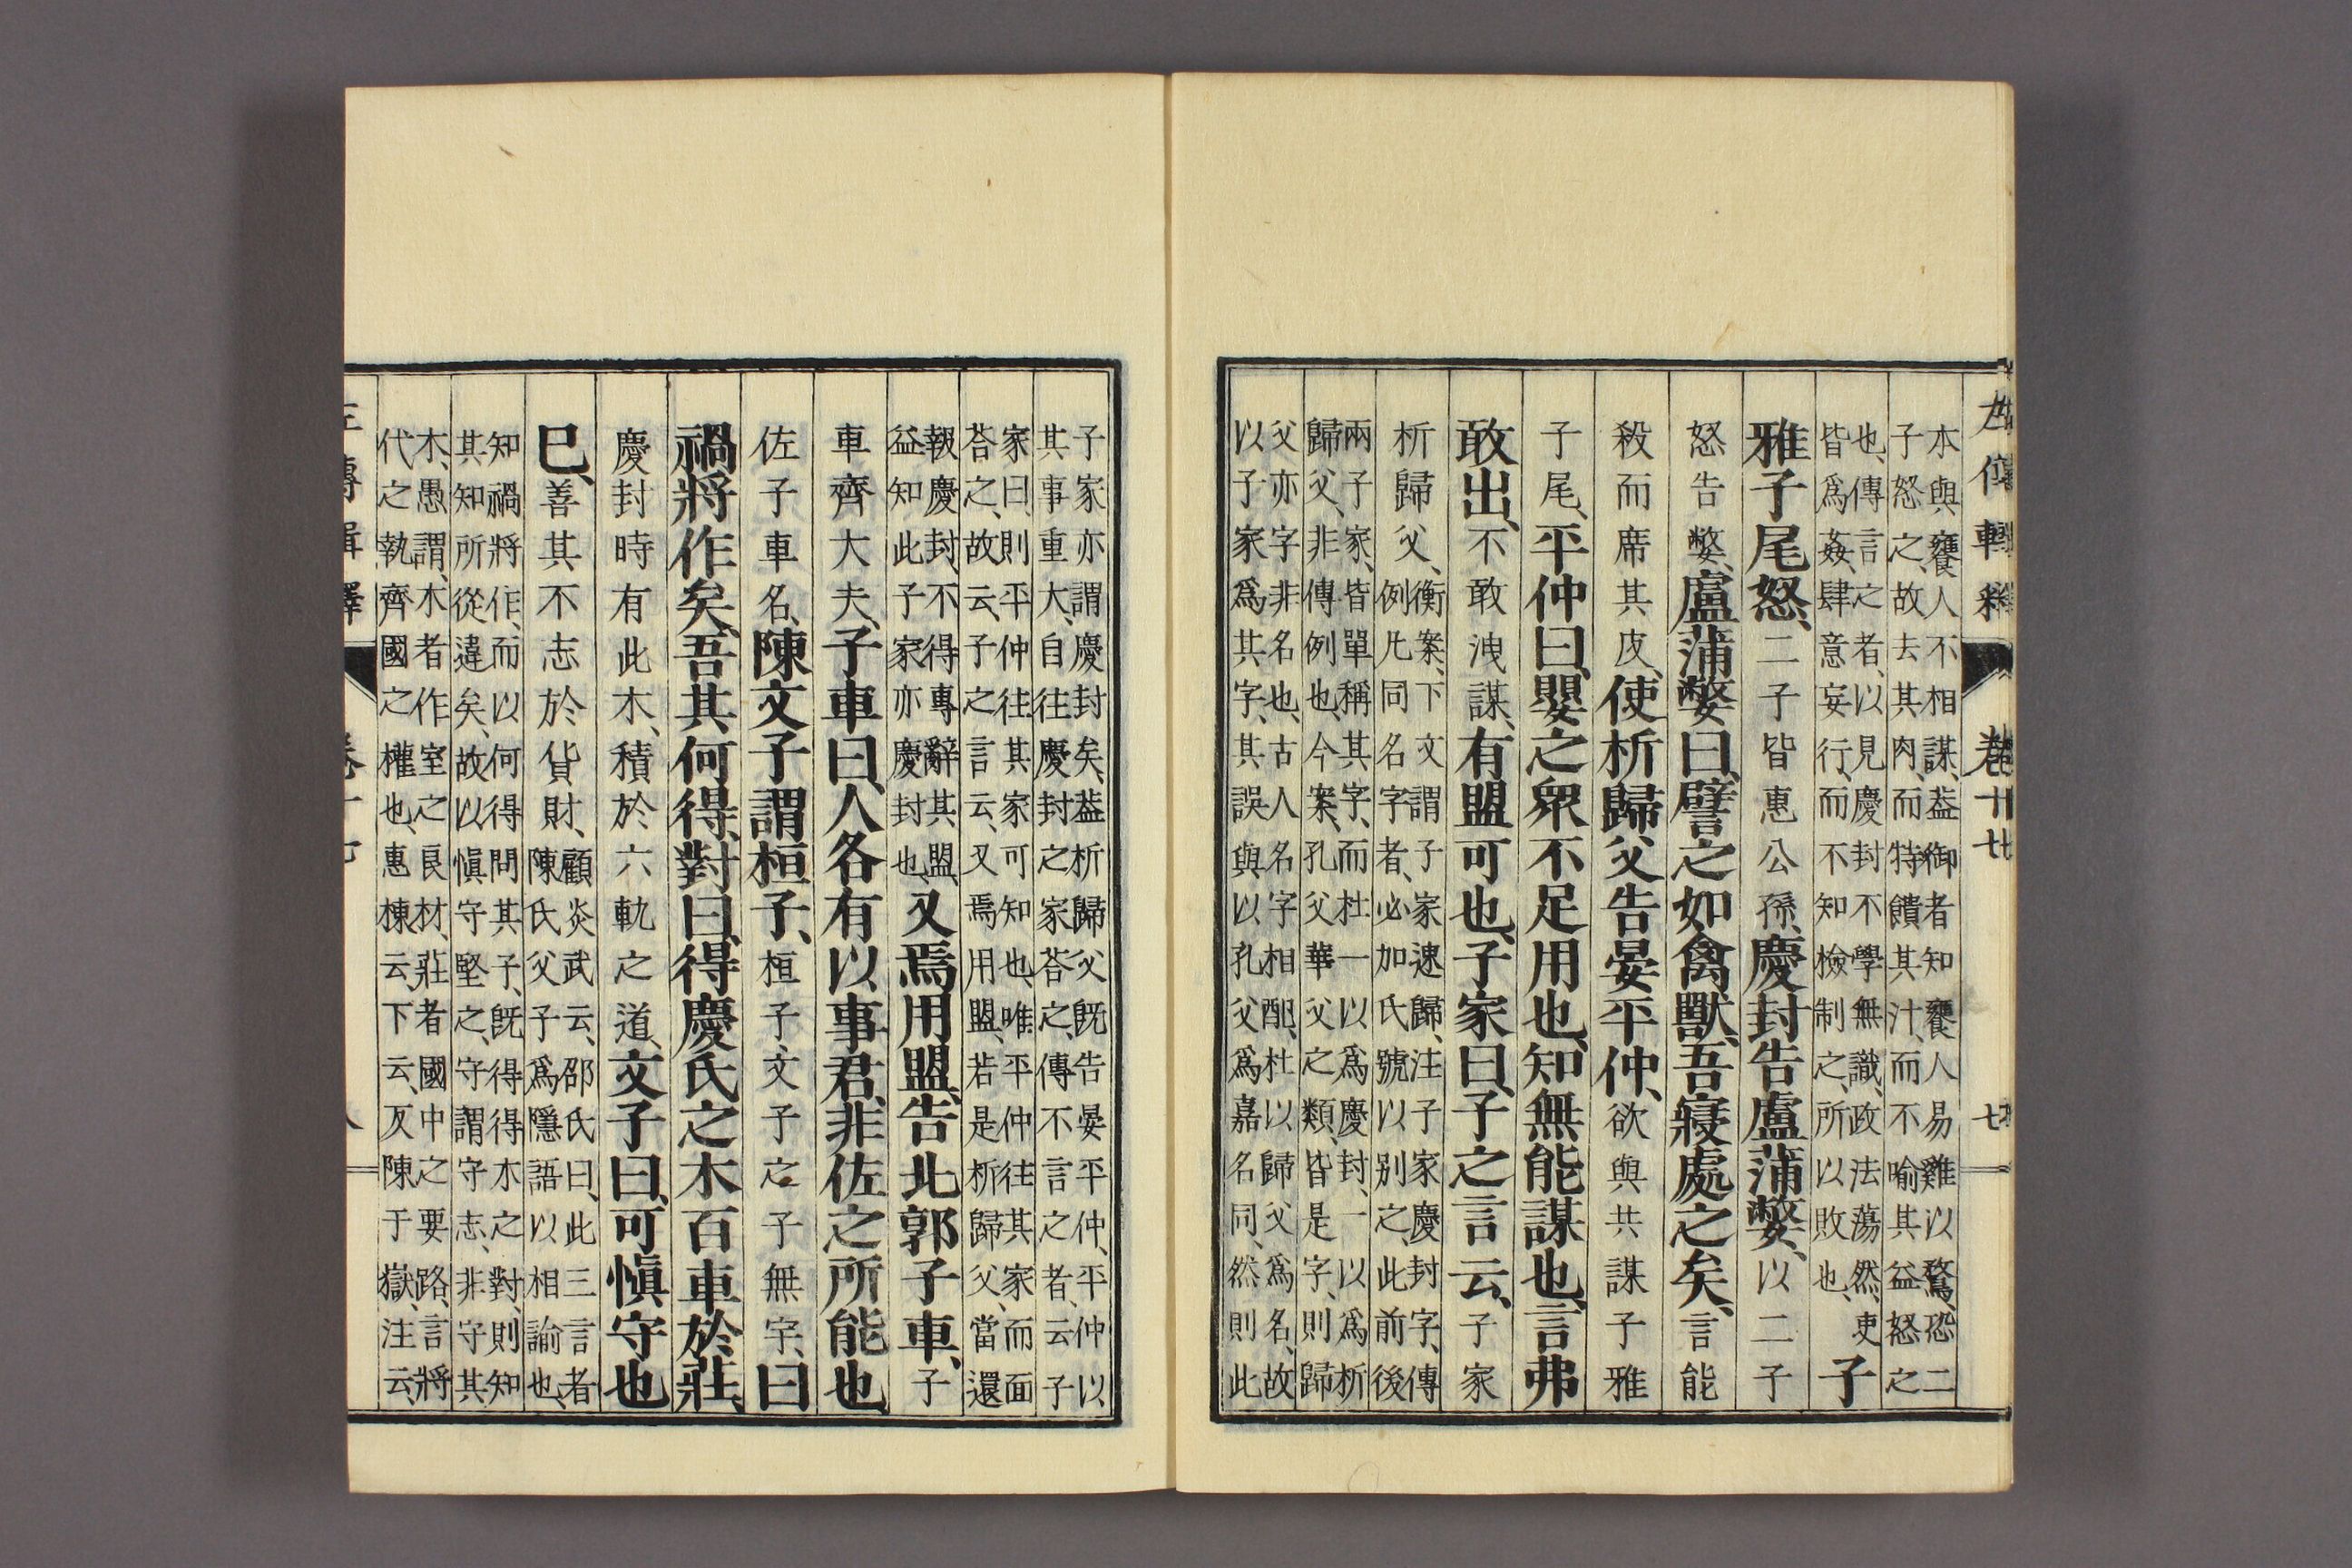 左傳輯釋 卷十七 七
本與饔人不相謀、葢御者知饔人易雞以鶩、恐二
子怒之、故去其肉、而特饋其汁、而不喻其益怒之
也、傳言之者、以見慶封不學無識、政法蕩然、吏
皆爲姦、肆意妄行、而不知檢制之、所以敗也、子
雅子尾怒、二子皆惠公孫、慶封告盧蒲嫳、以二子
怒告嫳、盧蒲嫳曰、譬之如禽獸、吾寢處之矣、言能
殺而席其皮、使析歸父告晏平仲、欲與共謀子雅
子尾、平仲曰、嬰之衆不足用也、知無能謀也、言弗
敢出、不敢洩謀、有盟可也、子家曰、子之言云、子家
析歸父、衡案、下文謂子家速歸、注子家慶封字、傳
例凡同名字者、必加氏號以别之、此前後
兩子家、皆單稱其字、而杜一以爲慶封、一以爲析
歸父、非傳例也、今案、孔父華父之類、皆是字、則歸
父亦字非名也、古人名字相配、杜以歸父爲名、故
以子家爲其字、其誤與以孔父爲嘉名同、然則此
子家亦謂慶封矣、葢析歸父既告晏平仲、平仲以
其事重大、自往慶封之家荅之、傳不言之者、云子
家曰、則平仲往其家可知也、唯平仲往其家而面
荅之、故云、子之言云、又焉用盟、若是析歸父、當還
報慶封、不得專辭其盟、
益知此子家亦慶封也、又焉用盟、告北郭子車、子
車齊大夫、子車曰、人各有以事君、非佐之所能也、
佐子車名、陳文子謂桓子、桓子文子之子無宇、曰
禍將作矣、吾其何得、對曰、得慶氏之木百車於莊、
慶封時有此木、積於六軌之道、文子曰、可愼守也
已、善其不志於貨財、顧炎武云、邵氏曰、此三言者
陳氏父子爲隱語以相諭也、
知禍將作、而以何得問其子、既得得木之對、則知
其知所從違矣、故以愼守堅之、守謂守志、非守其
木、愚謂、木者作室之良材、莊者國中之要路、言將
代之執齊國之權也、惠棟云、下云、反陳于嶽、注云、